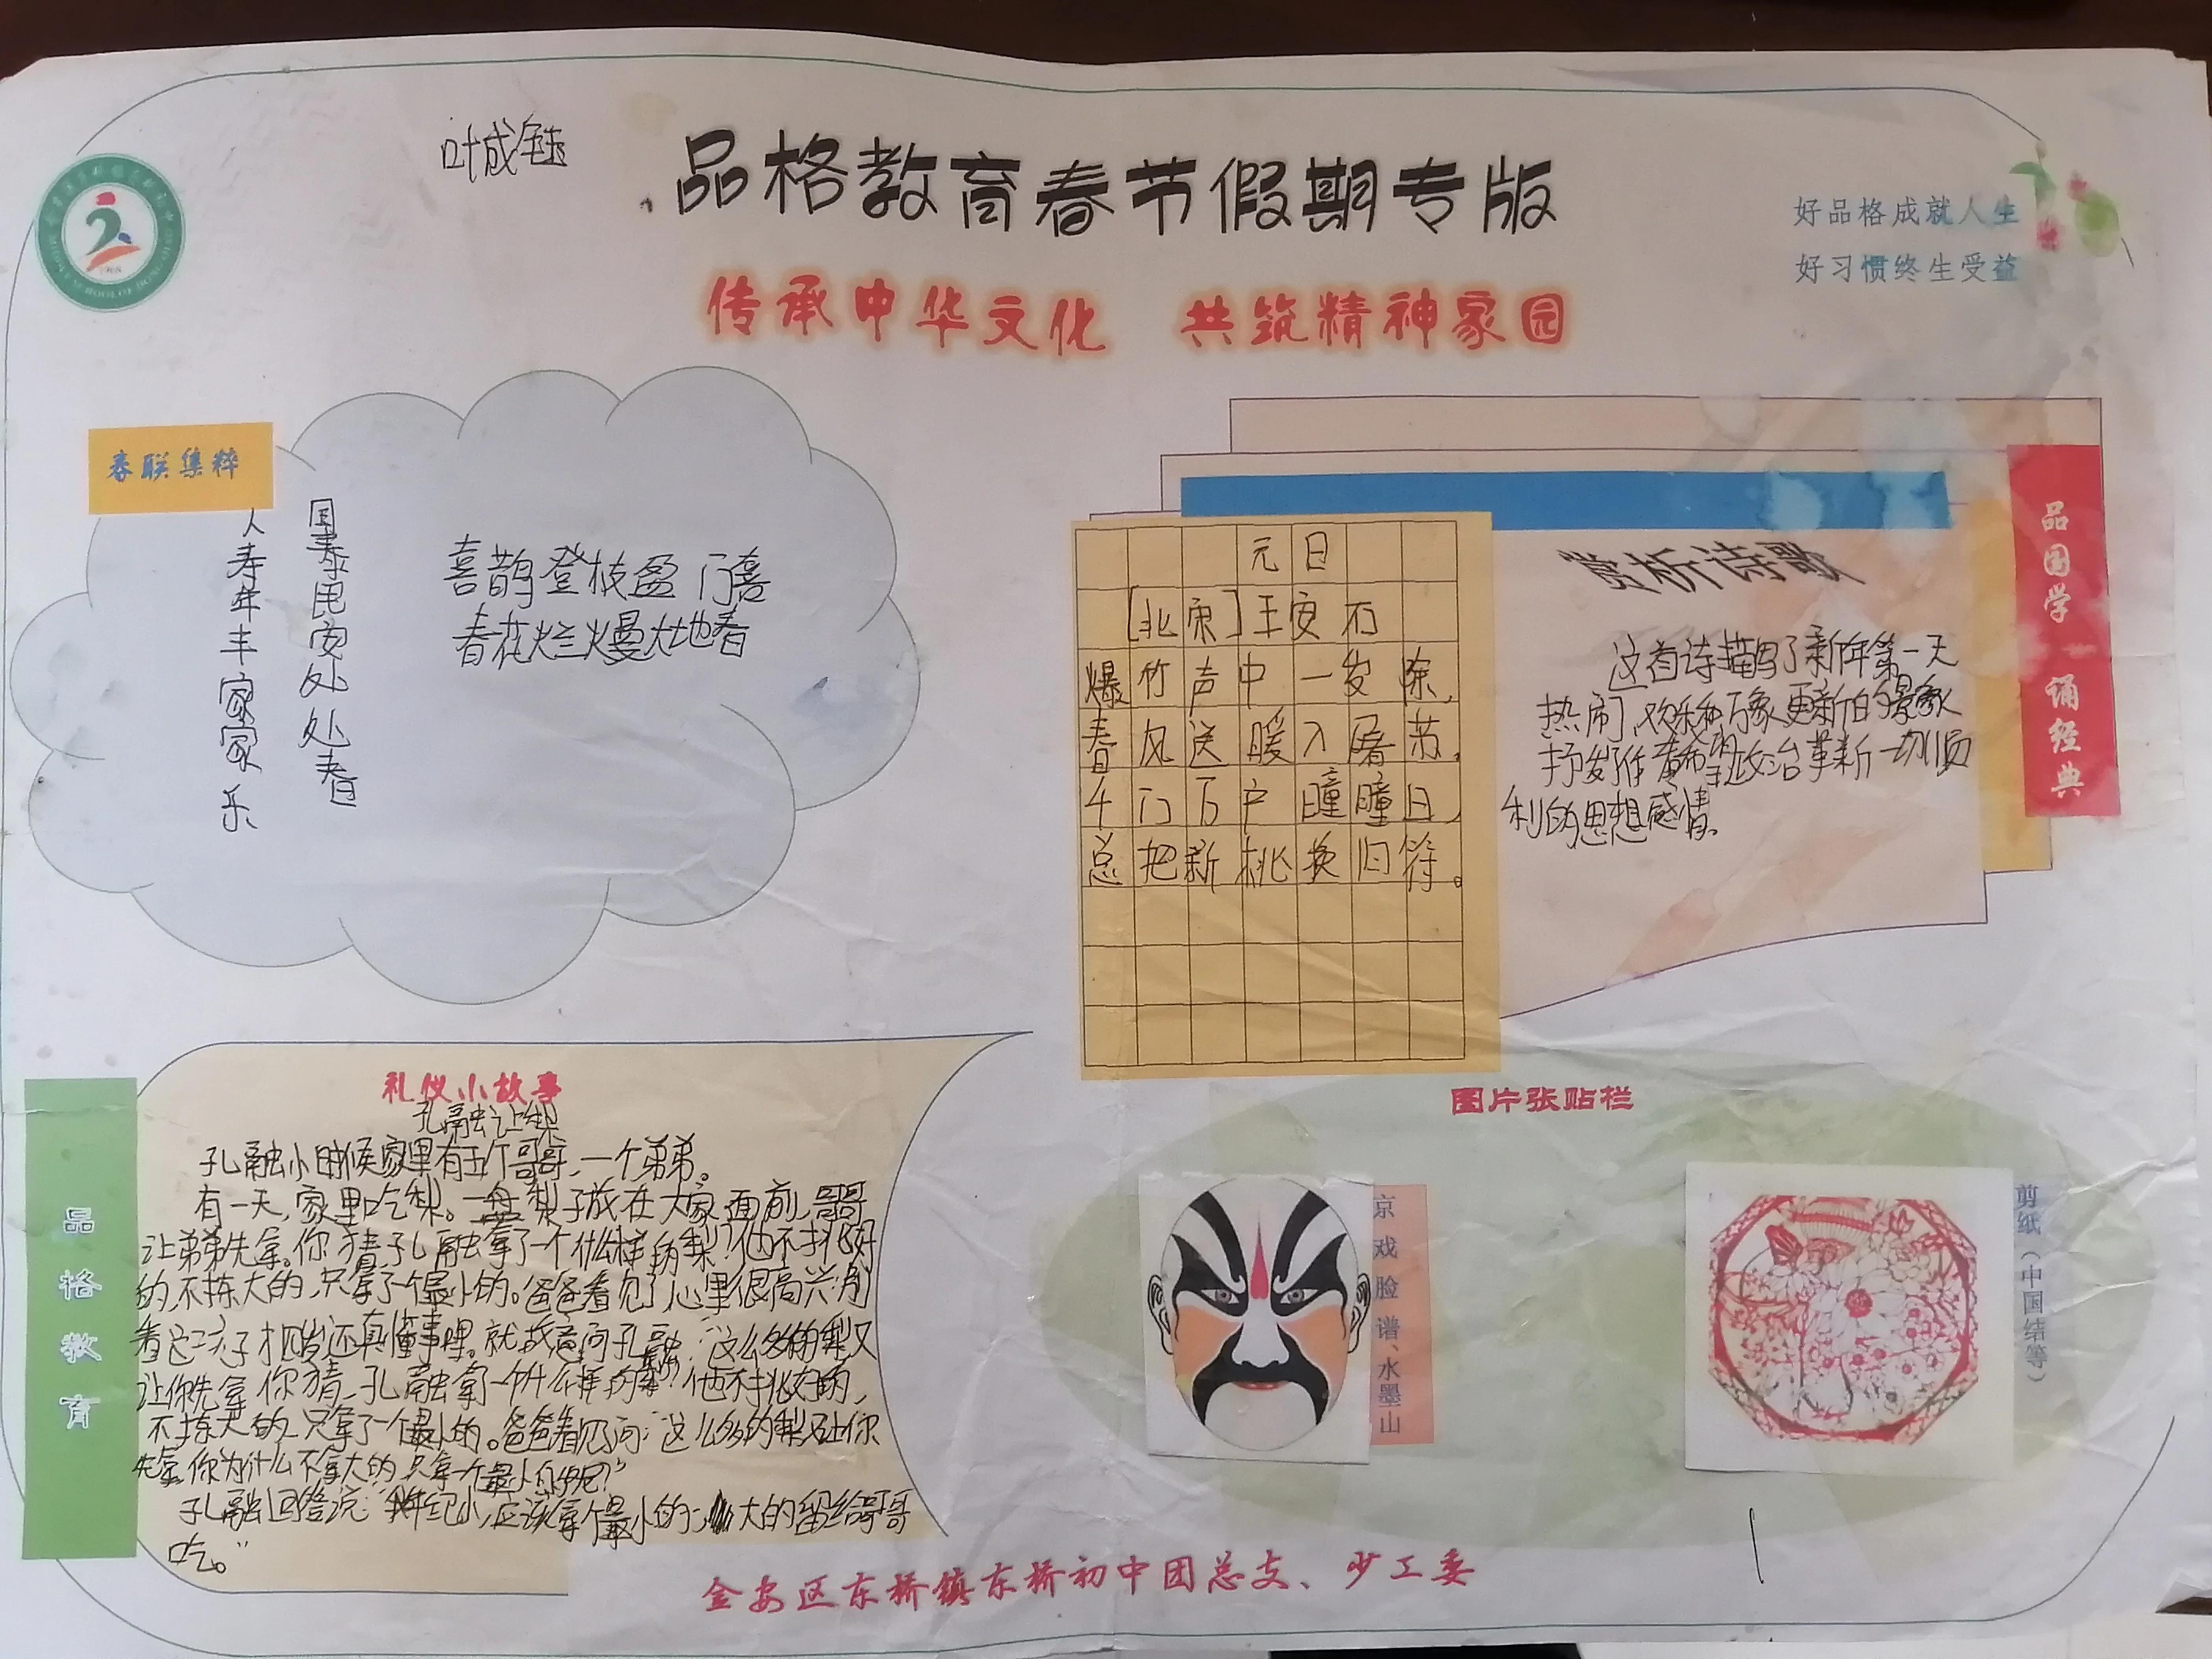 叶成钰
品格教育春节假期专版
好品格成就人生
好习惯终生受益
传承中华文化 共筑精神家园
春联集粹
国泰民安处处春
人寿年丰家家乐
喜鹊登枝盈门喜
春花烂漫大地春
品国学 诵经典
元日
[北宋]王安石
爆竹声中一岁除,
春风送暖入屠苏,
千门万户瞳瞳日,
总把新桃换旧符。
赏析诗歌
这首诗描写了新年第一天
热闹、欢乐和万象更新的景象
抒发作者希望政治革新一切顺
利的思想感情。
品格教育
礼仪小故事
孔融让梨
孔融小时候家里有五个哥哥,一个弟弟。
有一天,家里吃梨。一盘梨子放在大家面前,哥哥
让弟弟先拿。你猜,孔融拿了一个什么样的梨?他不挑好
的,不拣大的,只拿了一个最小的。爸爸看见了心里很高兴:别
看这孩子才四岁还真懂事哩。就故意问孔融:“这么多的梨又
让你先拿 你猜,孔融拿一个什么样的梨?他不挑好的,
不拣大的,只拿了一个最小的。爸爸看见问:“这么多的梨又让你
先拿,你为什么不拿大的,只拿一个最小的呢?”
孔融回答说:“我年纪小,应该拿个最小的;大的留给哥哥
吃。”
图片张贴栏
京戏脸谱、水墨山
剪纸(中国结等)
金安区东桥镇东桥初中团总支、少工委